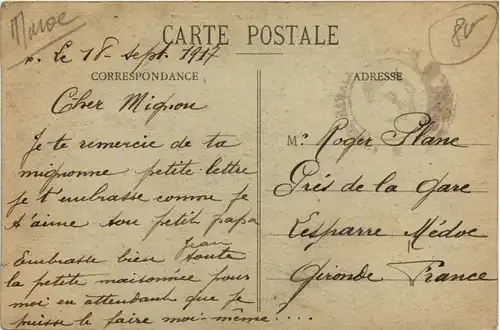 Maroc
80
CARTE POSTALE
Le 18 - Sept. 1917
CORRESPONDANCE
Cher Mignon
Je te remercie de ta
mignonne petite lettre
je t'embrasse comme je
t'aime ton petit papa
Jean
Embrasse bien toute
la petite maisonnée pour
moi en attendant que je
puisse le faire moi-même!...
ADRESSE
Mr Roger Plane
Près de la gare
Lesparre Médoc
Gironde France